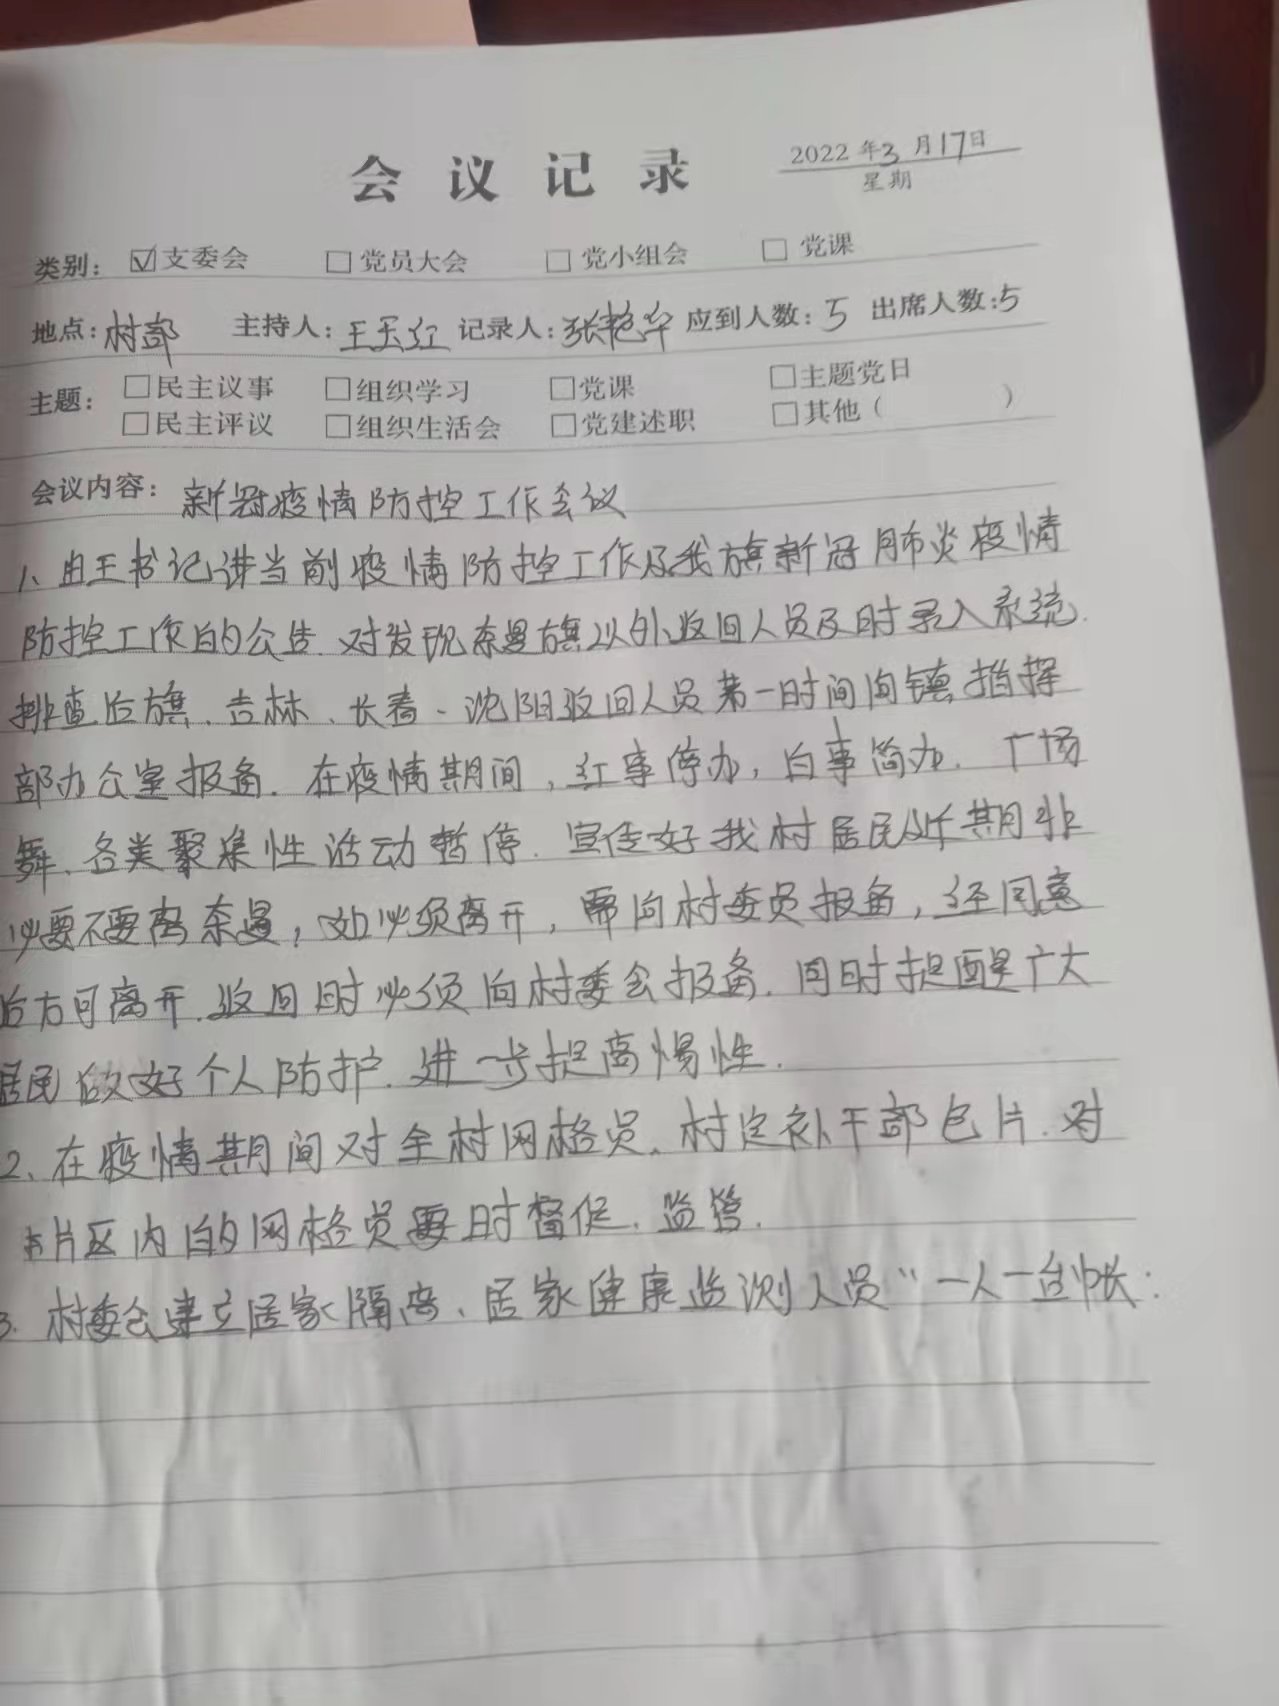 会议记录
2022年3月17日
星期
类别：☑支委会 □党员大会 □党小组会 □党课
地点：村部 主持人：王玉红 记录人：张艳华 应到人数：5 出席人数：5
主题：□民主议事 □组织学习 □党课 □主题党日
□民主评议 □组织生活会 □党建述职 □其他（ ）
会议内容：新冠疫情防控工作会议
1、由王书记讲当前疫情防控工作及我旗新冠肺炎疫情
防控工作的公告.对发现奈曼旗以外返回人员及时录入系统.
排查后旗、吉林、长春、沈阳返回人员第一时间向镇指挥
部办公室报备.在疫情期间，红事停办，白事简办.广场
舞、各类聚集性活动暂停.宣传好我村居民近期非
必要不要离奈曼，如必须离开，需向村委员报备，经同意
后方可离开.返回时必须向村委会报备.同时提醒广大
居民做好个人防护.进一步提高惕性.
2、在疫情期间对全村网格员.村定补干部包片.对
本片区内的网格员要时督促.监管.
3.村委会建立居家隔离、居家健康监测人员“一人一台帐：